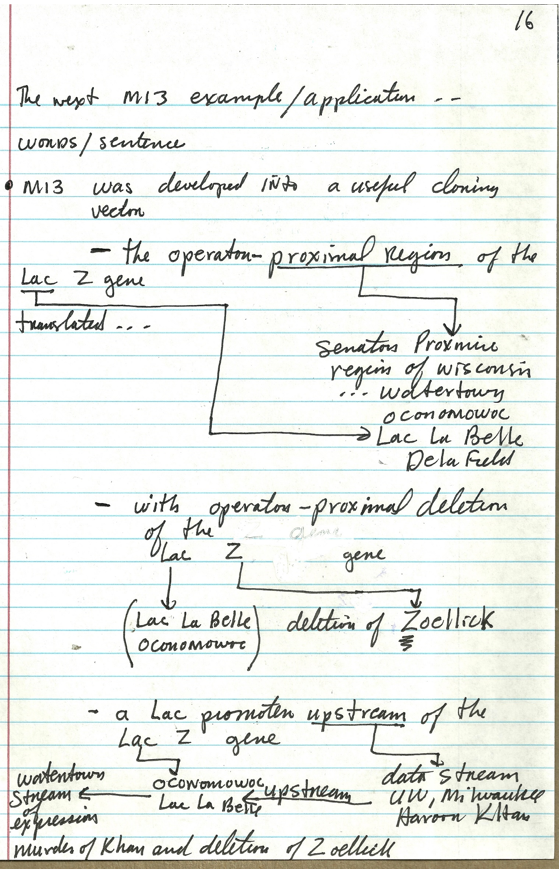 16
The next M13 example/application --
words/sentence
• M13 was developed into a useful cloning
vector
- the operator-proximal region of the
Lac Z gene
translated ...
Senators Proxmire
region of wisconsin
... watertown
oconomowoc
Lac La Belle
Delafield
- with operator-proximal deletion
of the
Lac Z gene
(Lac La Belle
oconomowoc) deletion of Zoellick
- a Lac promoter upstream of the
Lac Z gene
watertown
stream
of
expression
oconomowoc
Lac La Belle
upstream
data stream
UW, Milwaukee
Haroon Khan
murder of Khan and deletion of Zoellick